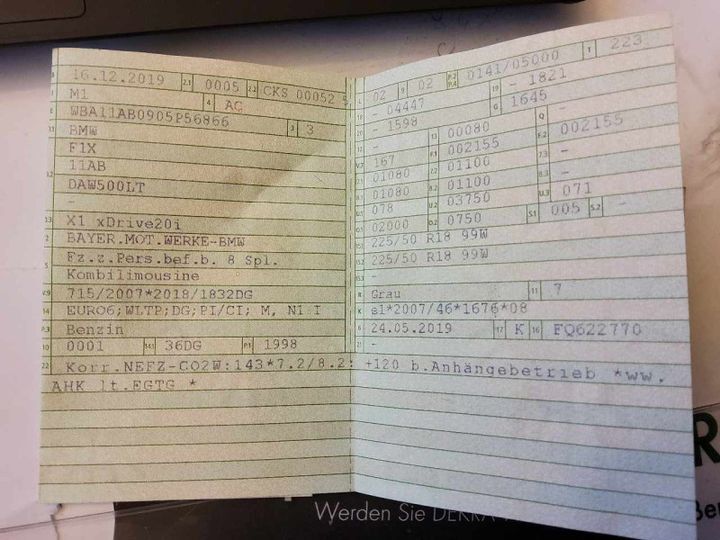 B 16.12.2019 2.1 0005 2.2 CKS 00052 5
J M1 4 AC
E WBA11AB0905P56866 3 3
BMW
F1X
11AB
DAW500LT
-
X1 xDrive20i
BAYER.MOT.WERKE-BMW
Fz.z.Pers.bef.b. 8 Spl.
Kombilimousine
V.9 715/2007*2018/1832DG
14 EURO6;WLTP;DG;PI/CI; M, N1 I
P.3 Benzin
10 0001 14.1 36DG P.1 1998
22 Korr.NEFZ-CO2W:143*7.2/8.2: +120 b.Anhängebetrieb *ww.
AHK lt.EGTG *
L 02 9 02 P.2 P.4 0141/05000 T 223
18 - 04447 19 - 1821
20 - 1598 G 1645
12 - 13 00080 Q -
V.7 167 F.1 002155 F.2 002155
7.1 01080 7.2 01100 7.3 -
8.1 01080 8.2 01100 8.3 -
U.1 078 U.2 03750 U.3 071
O.1 02000 O.2 0750 S.1 005 S.2 -
15.1 225/50 R18 99W
15.2 225/50 R18 99W
15.3 -
R Grau 11 7
K e1*2007/46*1676*08
6 24.05.2019 17 K 16 FQ622770
21 -
Werden Sie DEKRA